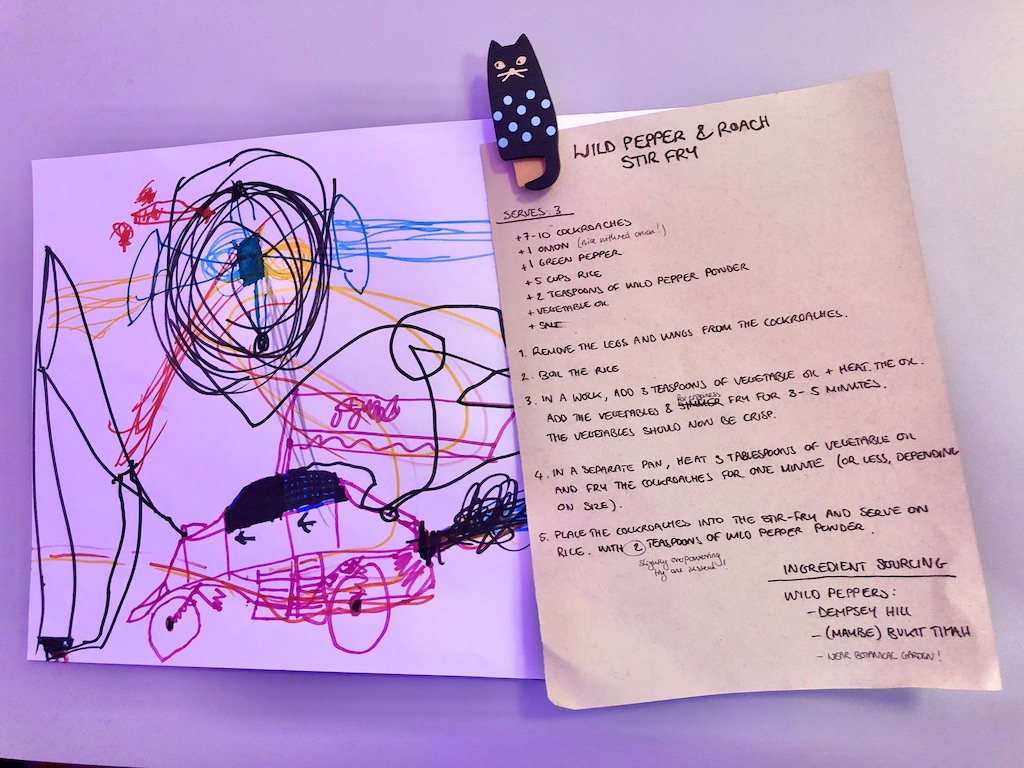 WILD PEPPER & ROACH
STIR FRY
SERVES: 3
+7-10 COCKROACHES
+1 ONION (nice without onion!)
+1 GREEN PEPPER
+5 CUPS RICE
+2 TEASPOONS OF WILD PEPPER POWDER
+VEGETABLE OIL
+ SALT
1. REMOVE THE LEGS AND WINGS FROM THE COCKROACHES.
2. BOIL THE RICE
3. IN A WORK, ADD 3 TEASPOONS OF VEGETABLE OIL + HEAT THE OIL.
for crispness
ADD THE VEGETABLES & SIMMER FRY FOR 3-5 MINUTES.
THE VEGETABLES SHOULD NOW BE CRISP.
4. IN A SEPARATE PAN, HEAT 3 TABLESPOONS OF VEGETABLE OIL
AND FRY THE COCKROACHES FOR ONE MINUTE (OR LESS, DEPENDING
ON SIZE).
5. PLACE THE COCKROACHES INTO THE STIR-FRY AND SERVE ON
RICE. WITH 2 TEASPOONS OF WILD PEPPER POWDER.
slightly overpowering
try one instead!
INGREDIENT SOURCING
WILD PEPPERS:
- DEMPSEY HILL
- (MAYBE) BUKIT TIMAH
- NEAR BOTANICAL GARDEN!